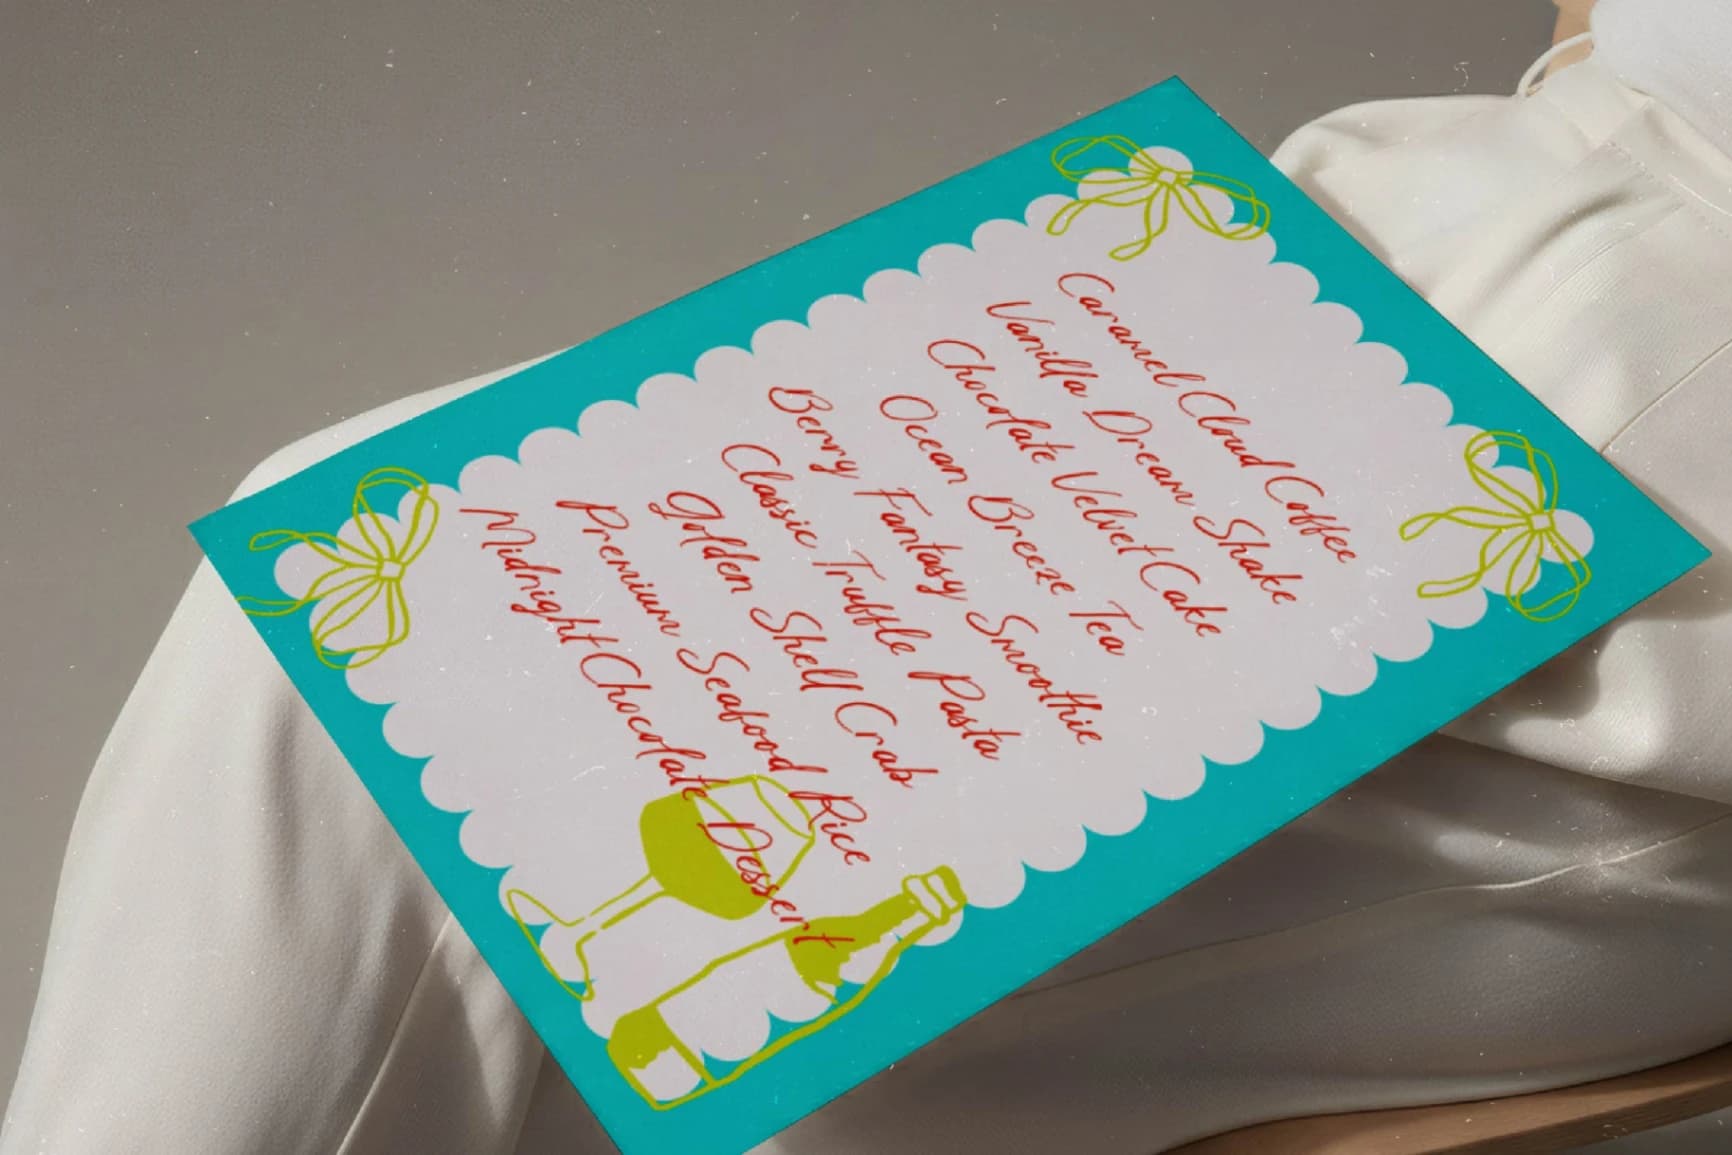 Caramel Cloud Coffee
Vanilla Dream Shake
Chocolate Velvet Cake
Ocean Breeze Tea
Berry Fantasy Smoothie
Classic Truffle Pasta
Golden Shell Crab
Premium Seafood Rice
Midnight Chocolate Dessert